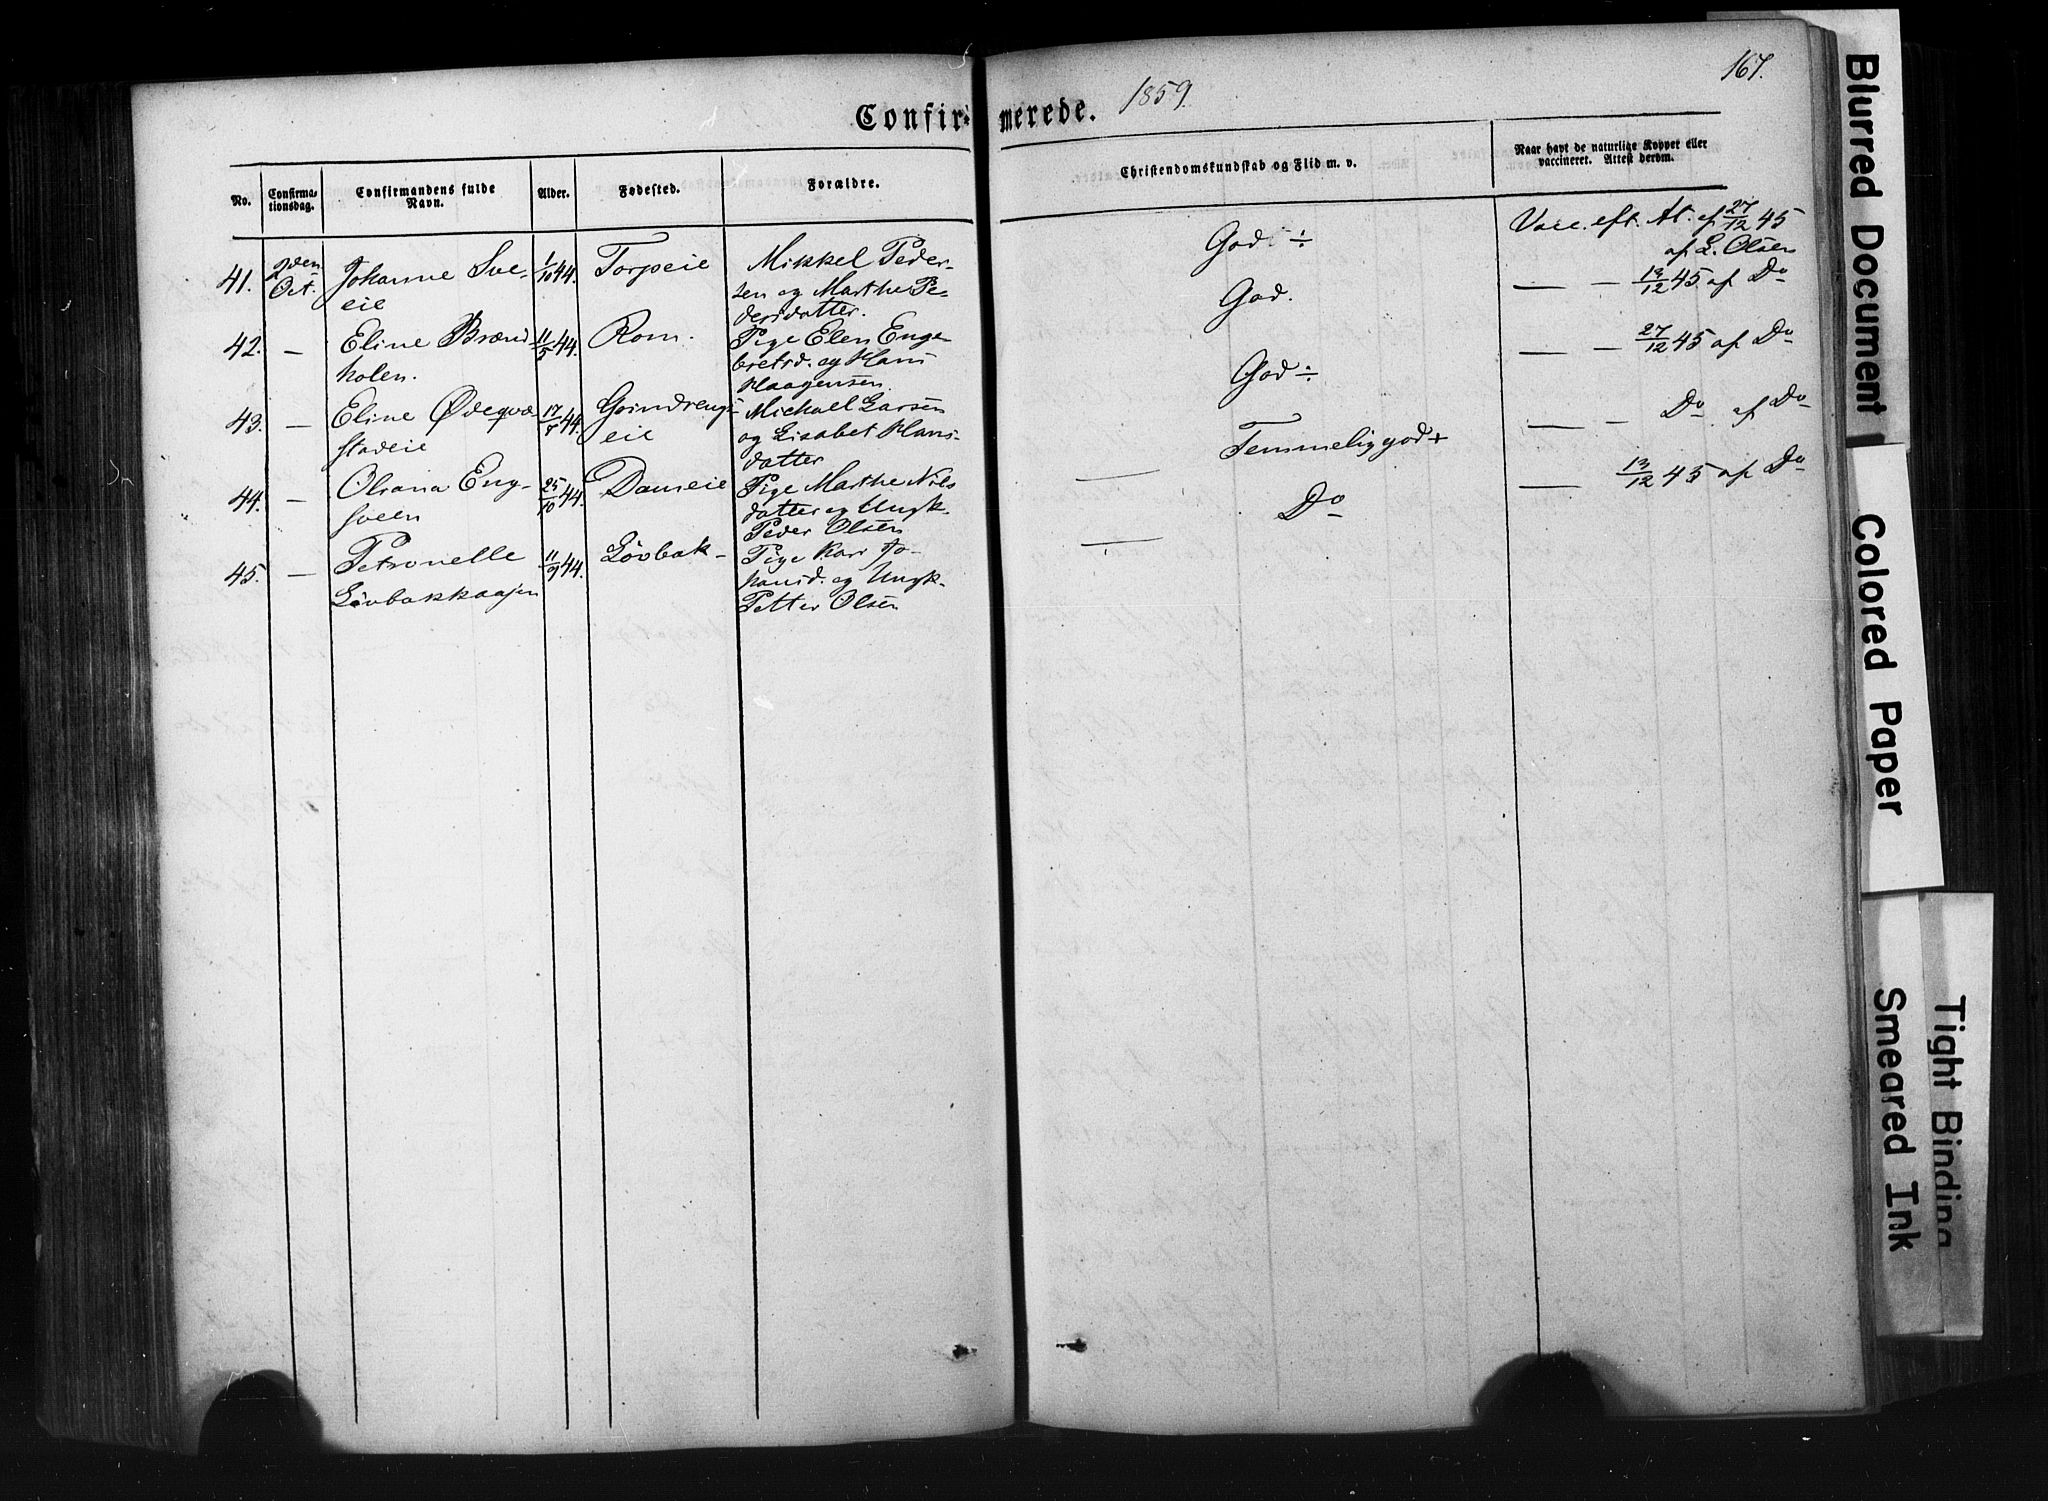 167.
Confirmerede. 1859
No. Confirmationsdag. Confirmandens fulde Navn. Alder. Fødested. Forældre. Christendomskundskab og Flid m. v. Naar havt de naturlige Kopper eller vaccineret. Attest derom.
41. den Oct. Johanne Sve-
eie
1/10 44. Torpeie
Mikkel Peder-
sen og Marthe Pe-
dersdatter.
God ÷
Vacc. eft. At. af 27/12 45
af L. Olsen
42. — Eline Brænd
holen.
11/5 44. Rom.
Pige Elen Enge-
bretsd. og Hans
Haagensen.
God.
— — 13/12 45 af Do
43. — Eline Ødeqvæ-
stadeie
17/7 44. Grindrengs-
eie
Michael Larsen
og Lisabet Hans-
datter
God ÷
— — 27/12 45 af Do
44. — Oleana Eng-
sveen
25/10 44. Dameie
Pige Marthe Nils
datter og Ungk.
Peder Olsen
— Temmelig god +
— — Do af Do
45. — Petronelle
Lövbakkaajen
11/9 44. Lövbak-
Pige Kari Jo-
hansd. og Ungk.
Petter Olsen
— Do
— — 13/12 45 af Do
Blurred Document
Colored Paper
Tight Binding
Smeared Ink